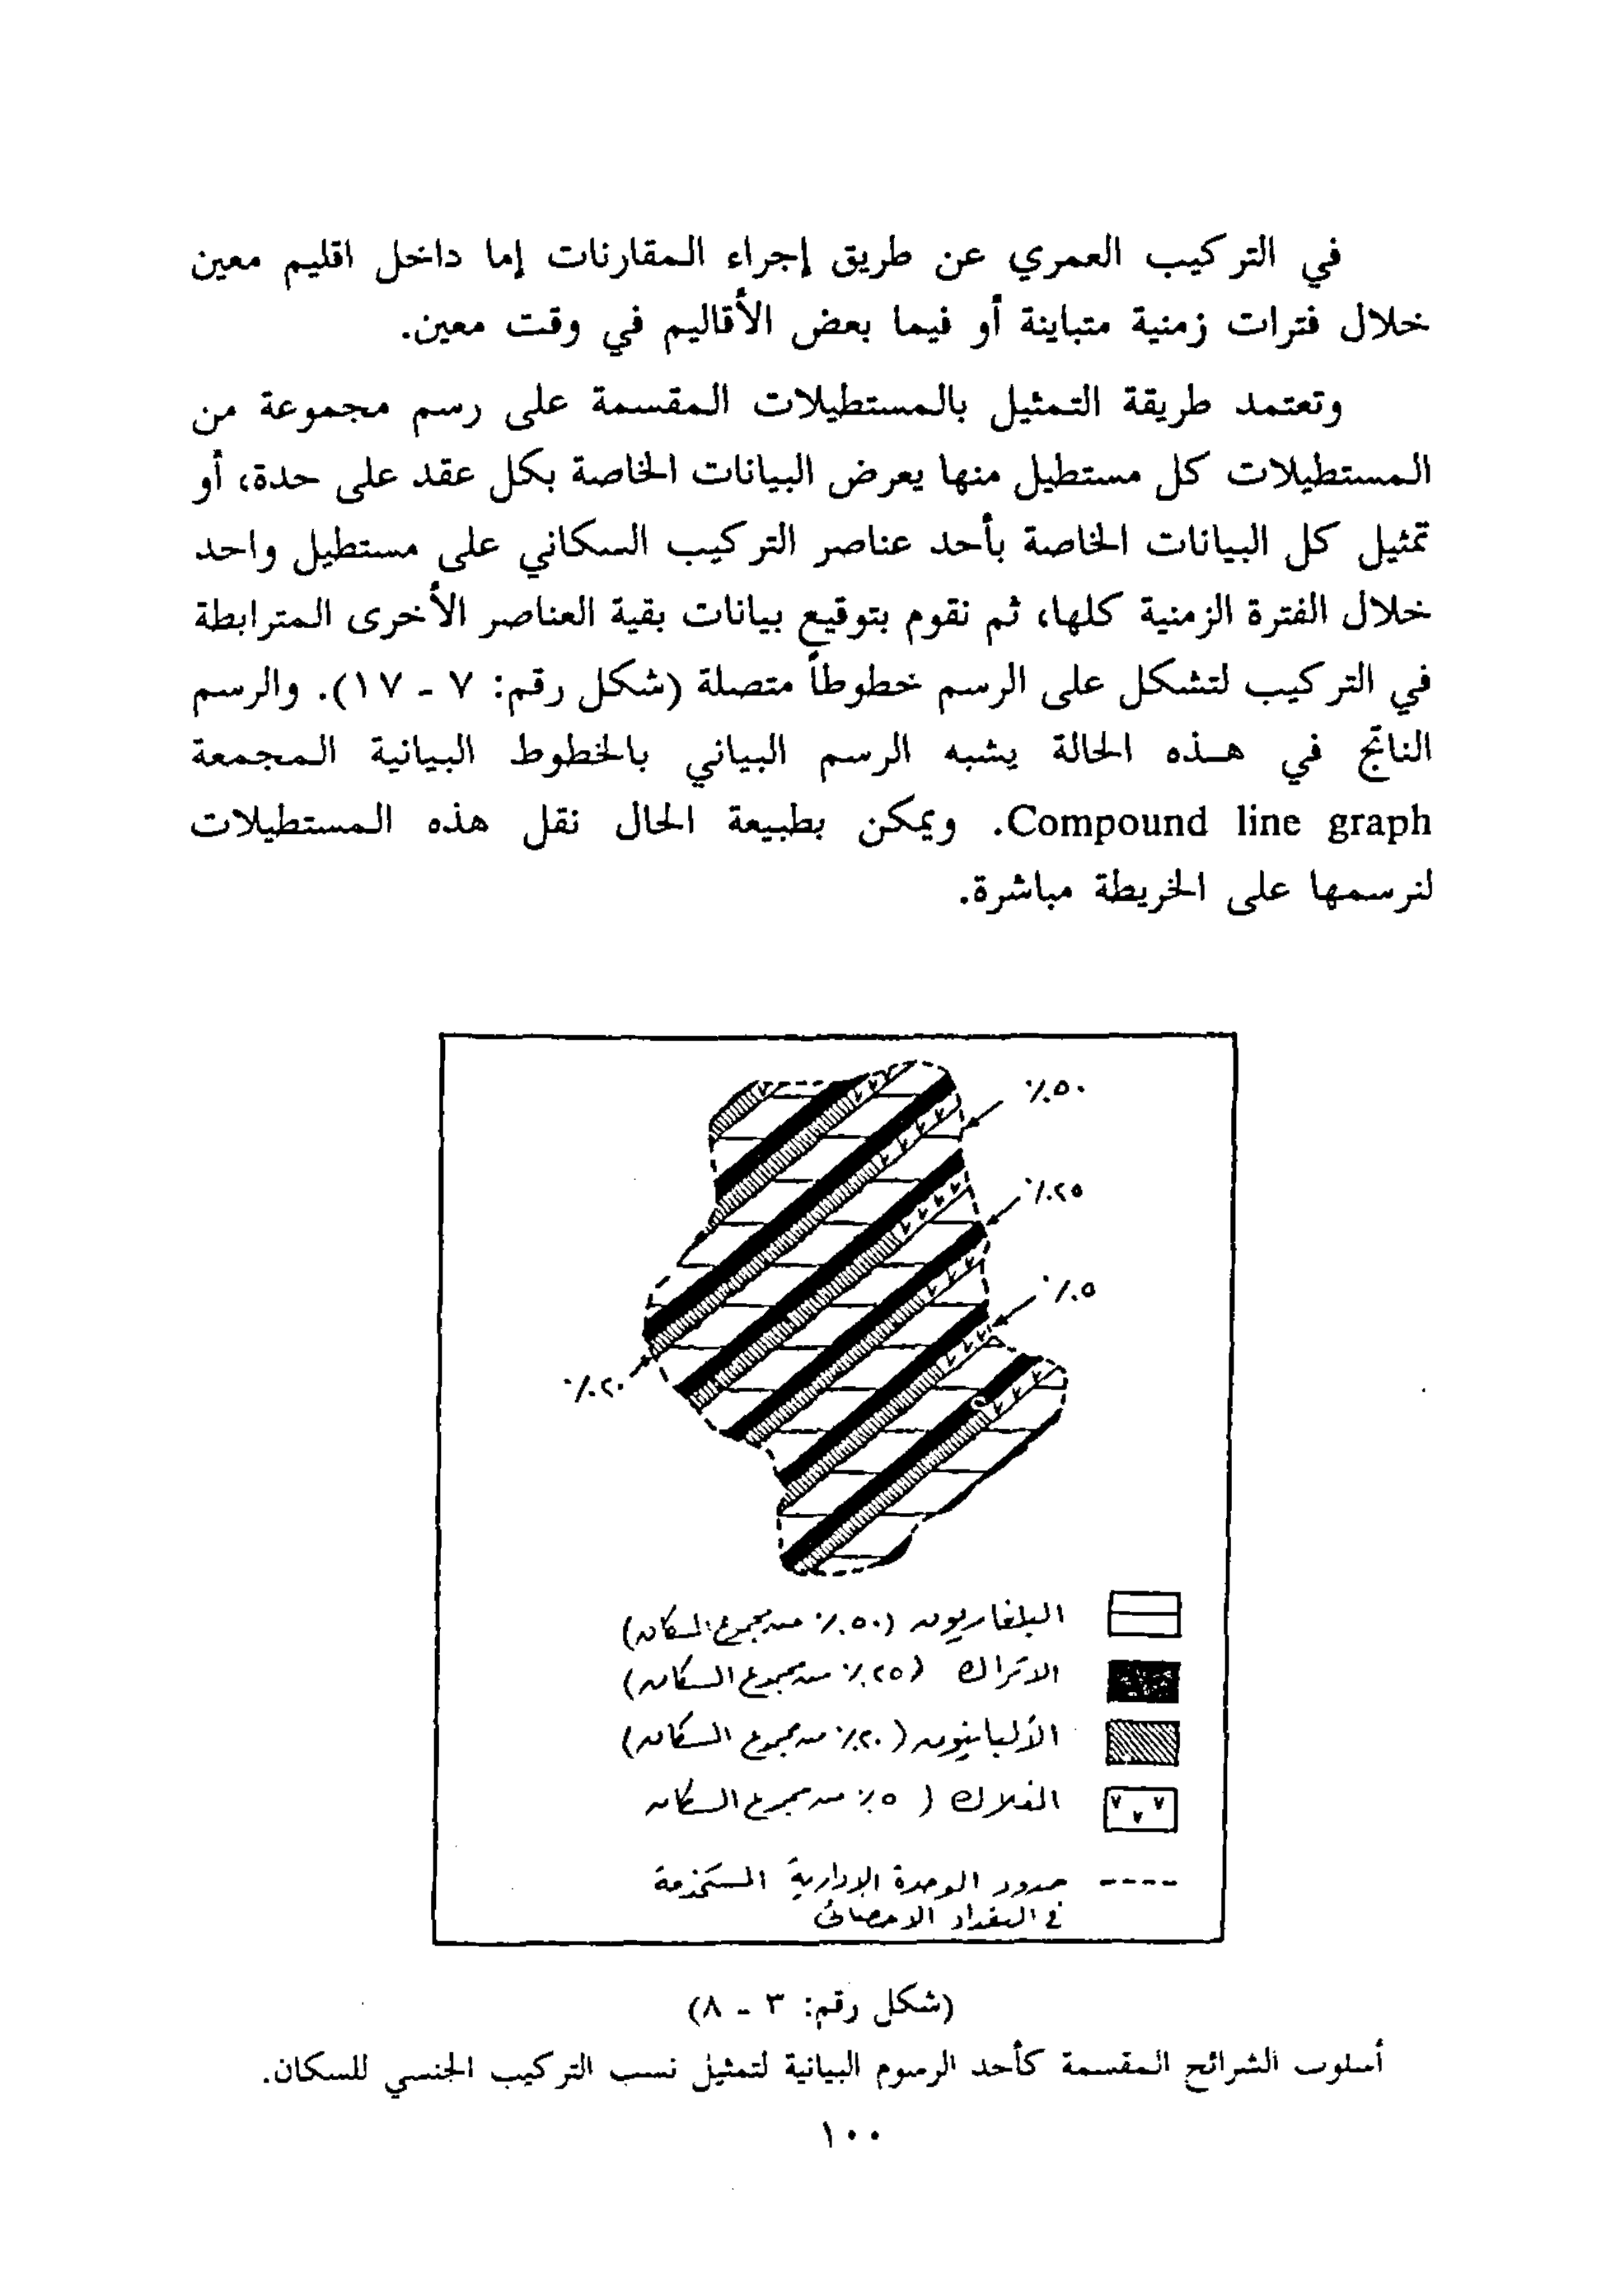 في التركيب العمري عن طريق إجراء المقارنات إما داخل اقليم معين
خلال فترات زمنية متباينة أو فيما بعض الأقاليم في وقت معين.
وتعتمد طريقة التمثيل بالمستطيلات المقسمة على رسم مجموعة من
المستطيلات كل مستطيل منها يعرض البيانات الخاصة بكل عقد على حدة، أو
تمثيل كل البيانات الخاصة بأحد عناصر التركيب السكاني على مستطيل واحد
خلال الفترة الزمنية كلها، ثم نقوم بتوقيع بيانات بقية العناصر الأخرى المترابطة
في التركيب لتشكل على الرسم خطوطاً متصلة (شكل رقم: ٧ - ١٧). والرسم
الناتج في هذه الحالة يشبه الرسم البياني بالخطوط البيانية المجمعة
Compound line graph. ويمكن بطبيعة الحال نقل هذه المستطيلات
لنرسمها على الخريطة مباشرة.
٥٠٪
٢٥٪
٥٪
٢٠٪
البلغاريون (٥٠٪ من مجموع السكان)
الاتراك (٢٥٪ من مجموع السكان)
الألبانيون (٢٠٪ من مجموع السكان)
الفلاك (٥٪ من مجموع السكان
حدود الوحدة الإدارية المستخدمة
في التعداد الاحصائى
(شكل رقم: ٣ - ٨)
أسلوب الشرائح المقسمة كأحد الرسوم البيانية لتمثيل نسب التركيب الجنسي للسكان.
١٠٠